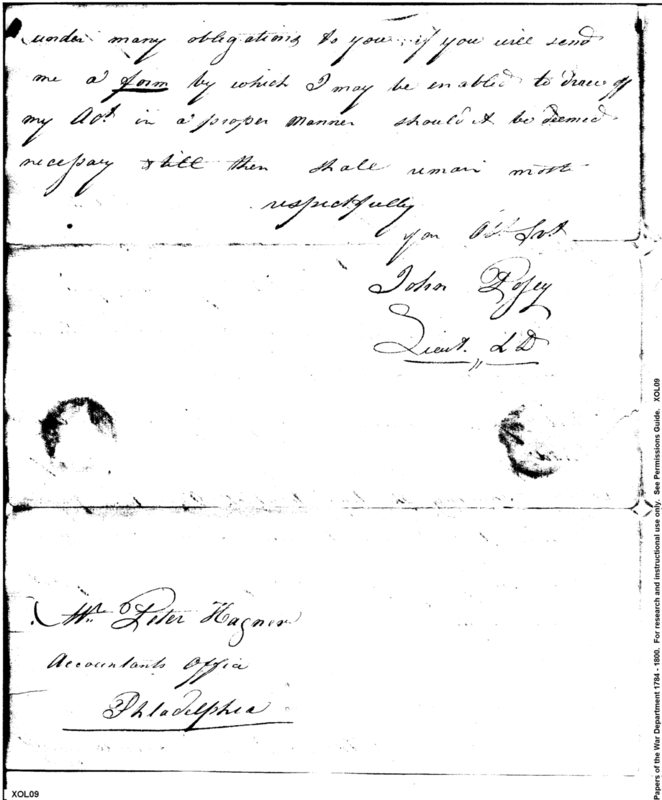 under many obligations to you, if you will send
me a form by which I may be enabled to draw off
my Acct in a proper manner should it be deemed
necessary & till then shall remain most
respectfully
your Obt Svt
John Posey
Lieut. L D
Mr Peter Hagner
Accountants Office
Philadelphia
XOL09
Papers of the War Department 1784 - 1800. For research and instructional use only. See Permissions Guide. XOL09